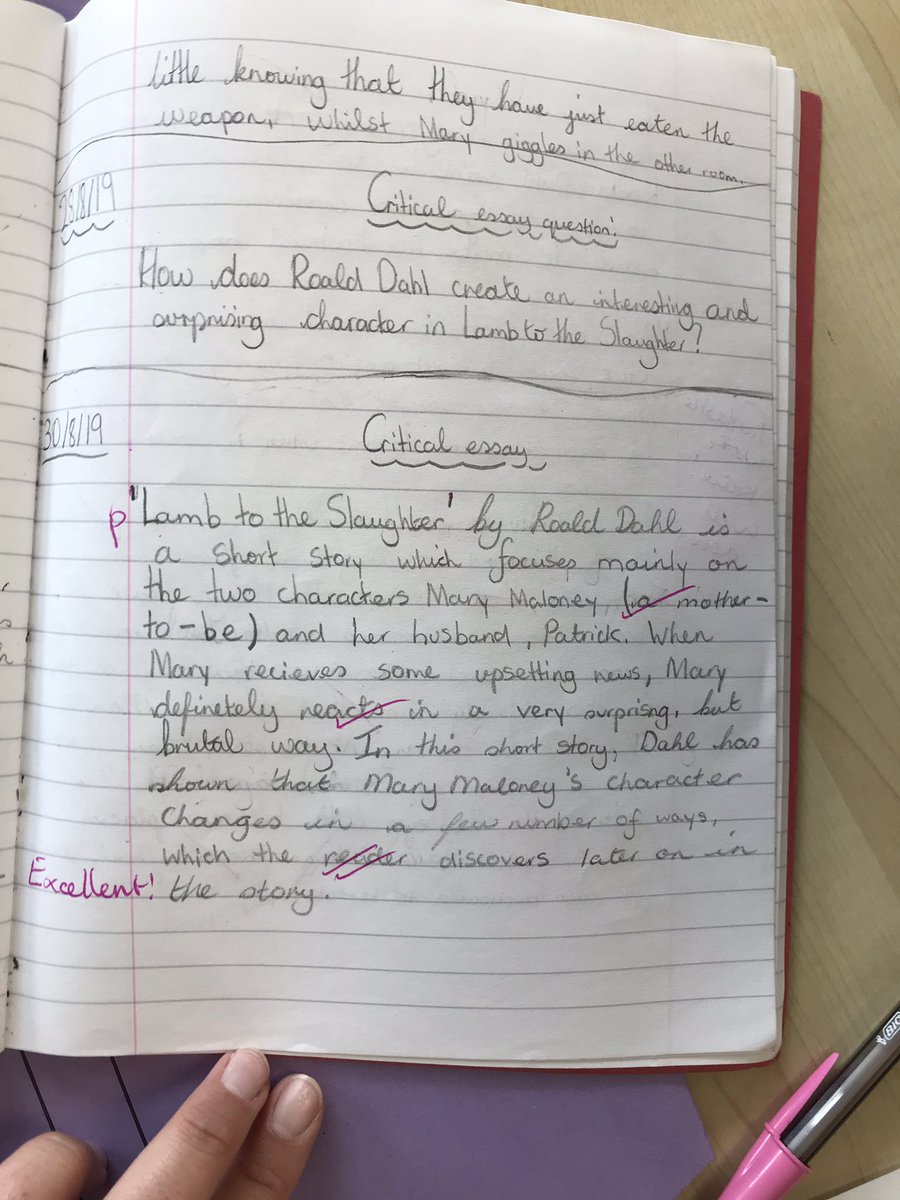 little knowing that they have just eaten the
weapon, whilst Mary giggles in the other room.
28/8/19
Critical essay question:
How does Roald Dahl create an interesting and
surprising character in Lamb to the Slaughter?
30/8/19
Critical essay
p 'Lamb to the Slaughter' by Roald Dahl is
a short story which focuses mainly on
the two characters Mary Maloney (a mother-
to-be) and her husband, Patrick. When
Mary recieves some upsetting news, Mary
definetely reacts in a very surprising, but
brutal way. In this short story, Dahl has
shown that Mary Maloney's character
changes in a few number of ways,
which the reader discovers later on in
Excellent! the story.
BIC